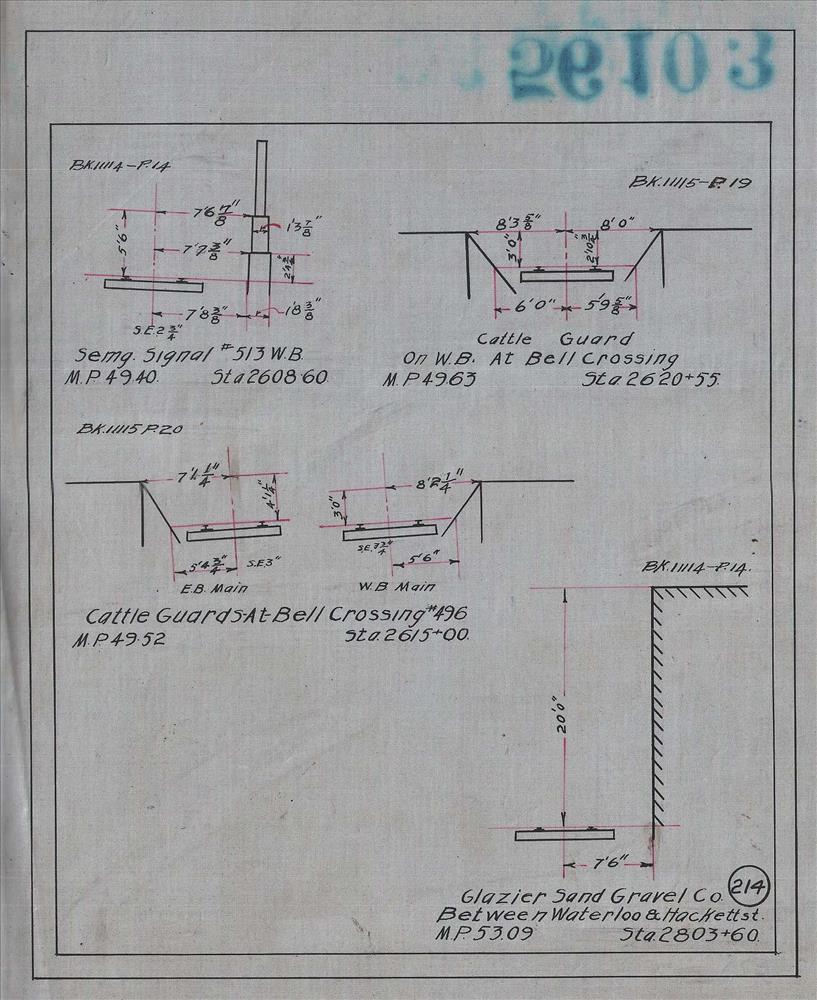 56103
BK.1114-P.14
7'6 7/8"
1'3 7/8"
5'6"
7'7 3/8"
7'8 3/8"
1'8 3/8"
S.E.2 3/4"
Semg. Signal #513 W.B.
M.P. 49.40. Sta 2608+60.
BK.1115-P.19
8'3 5/8" 8'0"
3'0" 2'10 3/4"
6'0" 5'9 5/8"
Cattle Guard
On W.B. At Bell Crossing
M.P. 49.63 Sta. 2620+55.
BK.1115 P.20
7'1 1/4"
4'1 1/4"
8'2 1/4"
3'0"
5'4 3/4" S.E.3"
5'6"
E.B. Main W.B. Main
Cattle Guards At Bell Crossing #496
M.P. 49.52 Sta 2615+00.
BK.1114-P.14.
20'0"
7'6"
214
Glazier Sand Gravel Co.
Between Waterloo & Hackettst.
M.P. 53.09 Sta. 2803+60.